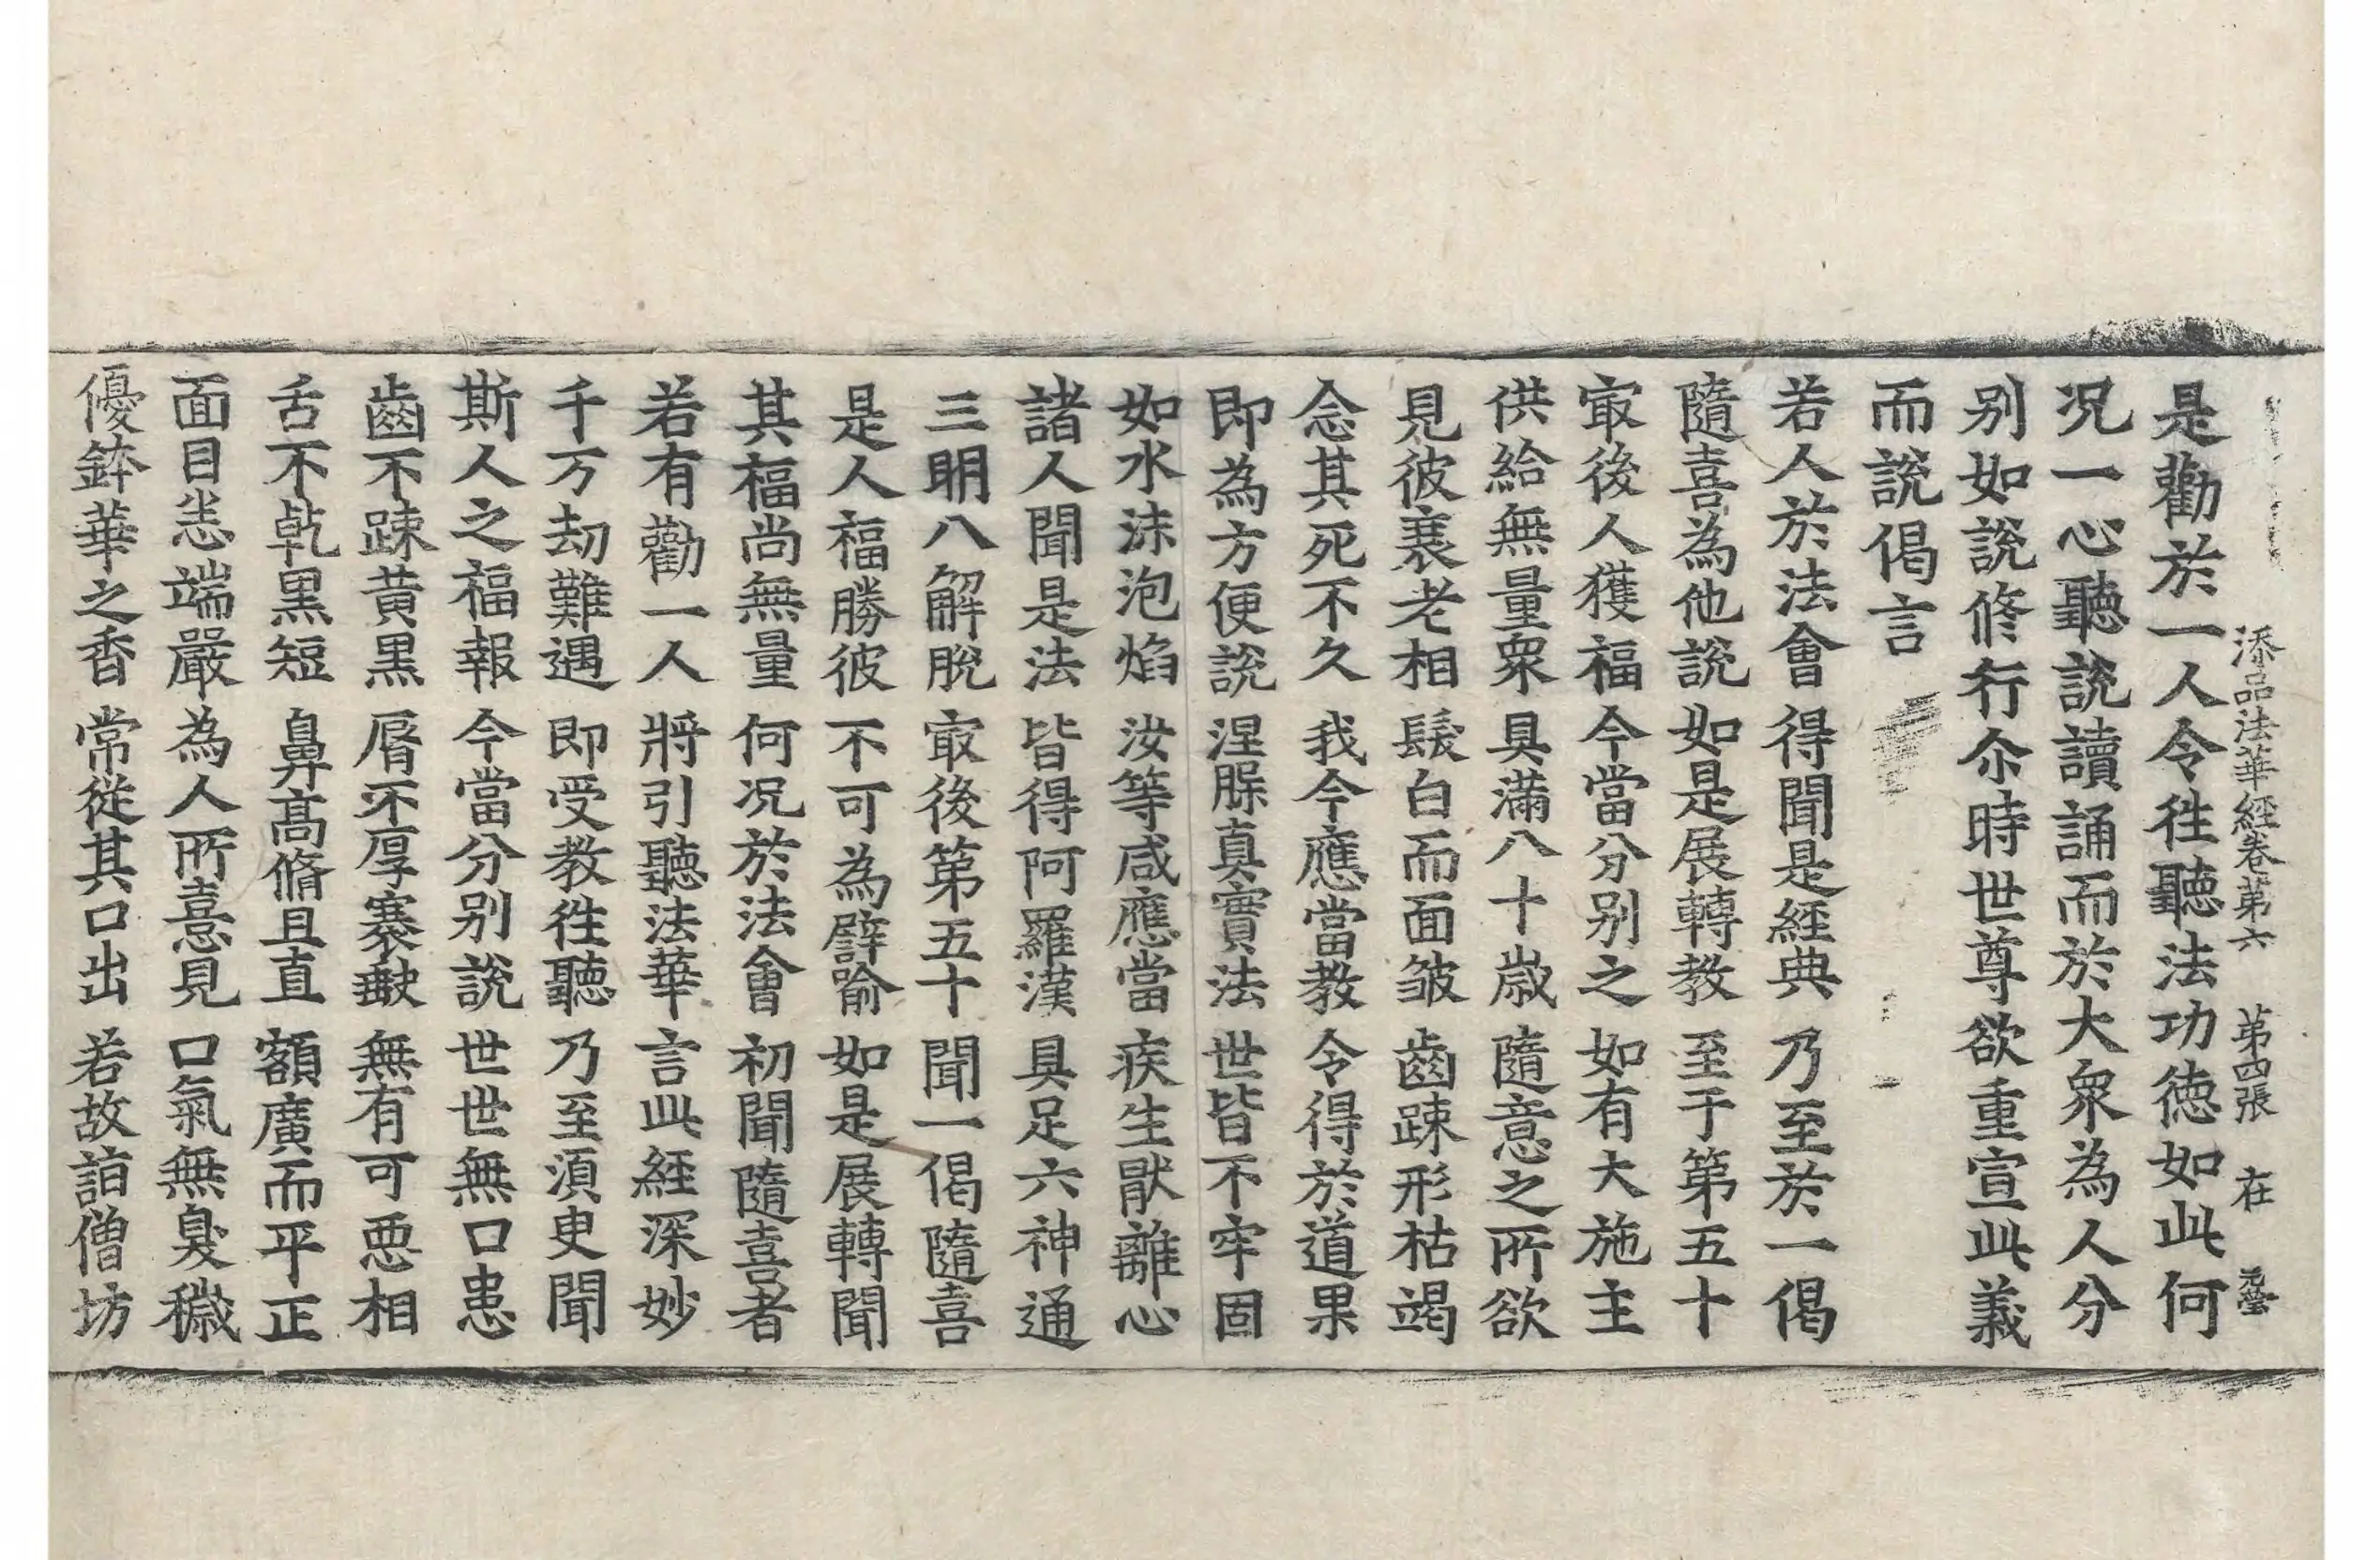 添品法華經卷第六 第四張 在
是勸於一人令徃聽法功德如此何
况一心聽說讀誦而於大衆為人分
别如說修行尒時世尊欲重宣此義
而說偈言
若人於法會 得聞是經典 乃至於一偈
隨喜為他說 如是展轉教 至于第五十
㝡後人獲福 今當分别之 如有大施主
供給無量衆 具滿八十歲 隨意之所欲
見彼衰老相 髮白而面皺 齒踈形枯竭
念其死不久 我今應當教 令得於道果
即為方便說 涅槃真實法 世皆不牢固
如水沫泡焰 汝等咸應當 疾生猒離心
諸人聞是法 皆得阿羅漢 具足六神通
三明八解脫 㝡後第五十 聞一偈隨喜
是人福勝彼 不可為譬喻 如是展轉聞
其福尚無量 何况於法會 初聞隨喜者
若有勸一人 將引聽法華 言此經深妙
千万劫難遇 即受教徃聽 乃至湏臾聞
斯人之福報 今當分别說 世世無口患
齒不踈黄黑 脣不厚褰缺 無有可惡相
舌不乾黑短 鼻髙脩且直 額廣而平正
面目悉端嚴 為人所憙見 口氣無臭穢
優鉢華之香 常從其口出 若故詣僧坊